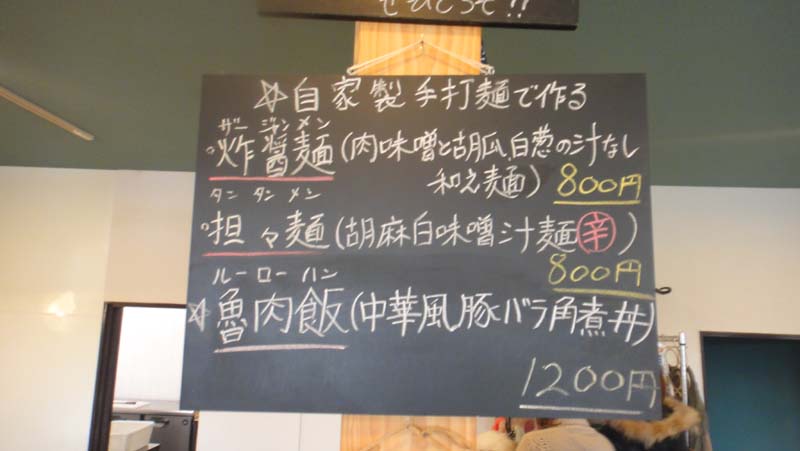 ぜひどうぞ!!
☆自家製手打麺で作る
ザージャンメン
・炸醤麺(肉味噌と胡瓜、白葱の汁なし
和え麺) 800円
タンタンメン
・担々麺(胡麻白味噌汁麺辛)
800円
ルーローハン
☆魯肉飯(中華風豚バラ角煮丼)
1200円